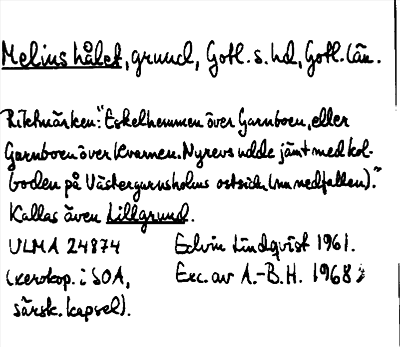 Melius hålet, grund, Gotl. s. hd, Gotl. län.
Riktmärken: "Eskelhemmen över Garnboen, eller
Garnboen över Kvarnen. Nyrevs udde jämt med kol-
boden på Västergarnsholms ostsida (nu nedfallen)."
Kallas även Lillgrund.
ULMA 24874 Edvin Lindqvist 1961.
(xerokop. i SOA, Exc. av A.-B. H. 1968
särsk. kapsel).